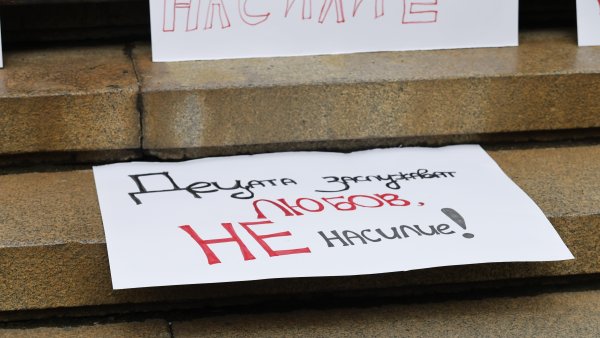 НАСИЛИЕ
Децата заслужават
ЛЮБОВ,
НЕ насилие!